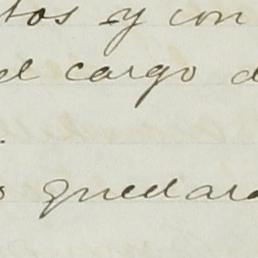 tos y con
el cargo d
o quedara